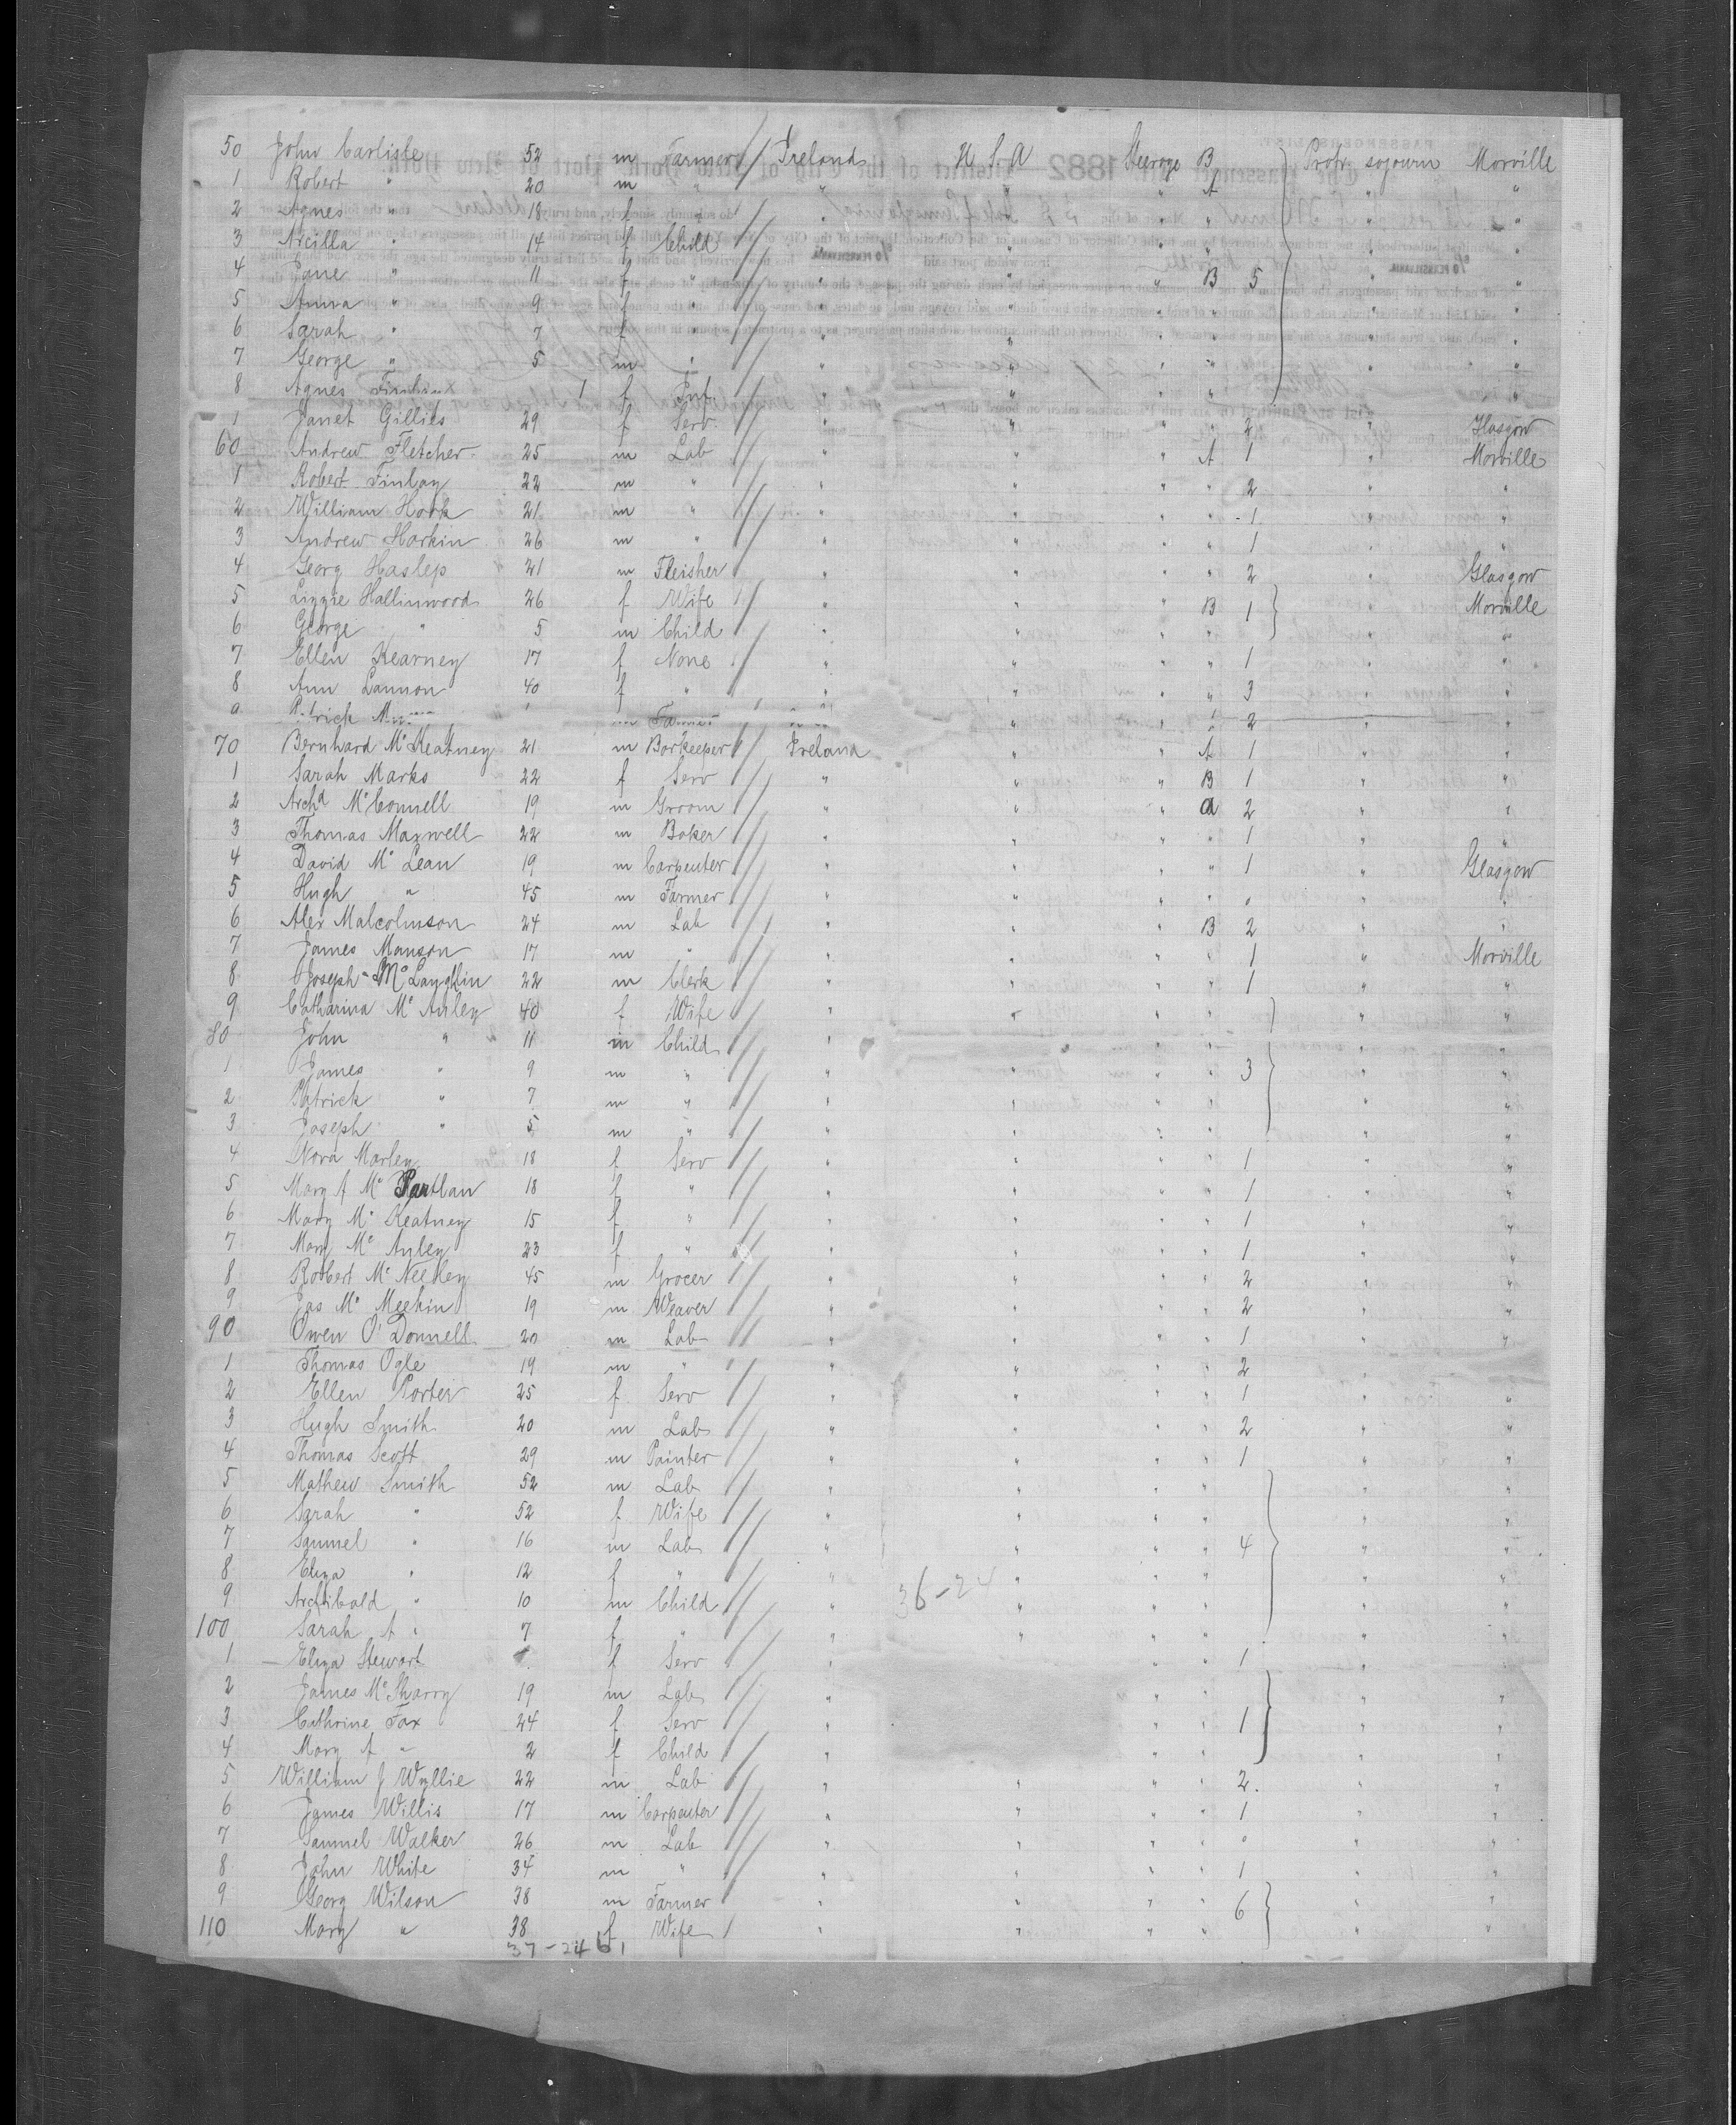 50 John Carlisle 52 m Farmer Ireland U S A Steerage B Protr. sojourn Morville
1 Robert " 20 m " " " " A " "
2 Agnes " 18 f " " " " " " "
3 Arcilla " 14 f Child " " " " " "
4 Jane " 11 f " " " " B 5 " "
5 Anna " 9 f " " " " " " "
6 Sarah " 7 f " " " " " " "
7 George " 5 m " " " " " " "
8 Agnes Finlay 1 f Inf. " " " " " "
1 Janet Gillies 29 f Serv. " " " " 2 " Glasgow
60 Andrew Fletcher 25 m Lab " " " A 1 " Morville
1 Robert Finlay 22 m " " " " " 2 " "
2 William Hook 21 m " " " " " 1 " "
3 Andrew Harkin 26 m " " " " " 1 " "
4 Georg Haslep 21 m Fleisher " " " " 2 " Glasgow
5 Lizzie Hallinwood 26 f Wife " " " B 1 " Morville
6 George " 5 m Child " " " " " "
7 Ellen Kearney 17 f None " " " " 1 " "
8 Ann Lannon 40 f " " " " " 3 " "
9 Patrick m Farmer " " 2 " "
70 Bernhard Mc Keatney 21 m Barkeeper Ireland " " A 1 " "
1 Sarah Marks 22 f Serv " " " B 1 " "
2 Archd Mc Connell 19 m Groom " " " a 2 " "
3 Thomas Maxwell 22 m Baker " " " " 1 " "
4 David Mc Lean 19 m Carpenter " " " " 1 " Glasgow
5 Hugh " 45 m Farmer " " " " " " "
6 Alex Malcolmson 24 m Lab " " " B 2 " "
7 James Manson 17 m " " " " " 1 " Morville
8 Joseph Mc Laughlin 22 m Clerk " " " " 1 " "
9 Catharina Mc Auley 40 f Wife " " " " " "
80 John " 11 m Child " " " " " "
1 James " 9 m " " " " " 3 " "
2 Patrick " 7 m " " " " " " "
3 Joseph " 5 m " " " " " " "
4 Nora Marley 18 f Serv " " " " 1 " "
5 Mary A Mc Partlan 18 f " " " " " 1 " "
6 Mary Mc Keatney 15 f " " " " " 1 " "
7 Mary Mc Auley 23 f " " " " " 1 " "
8 Robert Mc Neeley 45 m Grocer " " " " 2 " "
9 Jas Mc Meekin 19 m Weaver " " " " 2 " "
90 Owen O' Donnell 20 m Lab " " " " 1 " "
1 Thomas Ogle 19 m " " " " " 2 " "
2 Ellen Porter 25 f Serv " " " " 1 " "
3 Hugh Smith 20 m Lab " " " " 2 " "
4 Thomas Scott 29 m Painter " " " " 1 " "
5 Mathew Smith 52 m Lab " " " " " "
6 Sarah " 52 f Wife " " " " " "
7 Samuel " 16 m Lab " " " " 4 " "
8 Eliza " 12 f " " " " " " "
9 Archibald " 10 m Child " 36-24 " " " " "
100 Sarah A " 7 f " " " " " " "
1 Eliza Stewart f Serv " " " 1 " "
2 James Mc Sharry 19 m Lab " " " " "
3 Cathrine Fox 24 f Serv " " " 1 " "
4 Mary A " 2 f Child " " " " "
5 William J Wyllie 22 m Lab " " " " 2. " "
6 James Willis 17 m Carpenter " " " " 1 " "
7 Samuel Walker 26 m Lab " " " " " " "
8 John White 34 m " " " " " 1 " "
9 Georg Wilson 38 m Farmer " " " " 6 " "
110 Mary " 38 f Wife " " " " " "
37-24 61